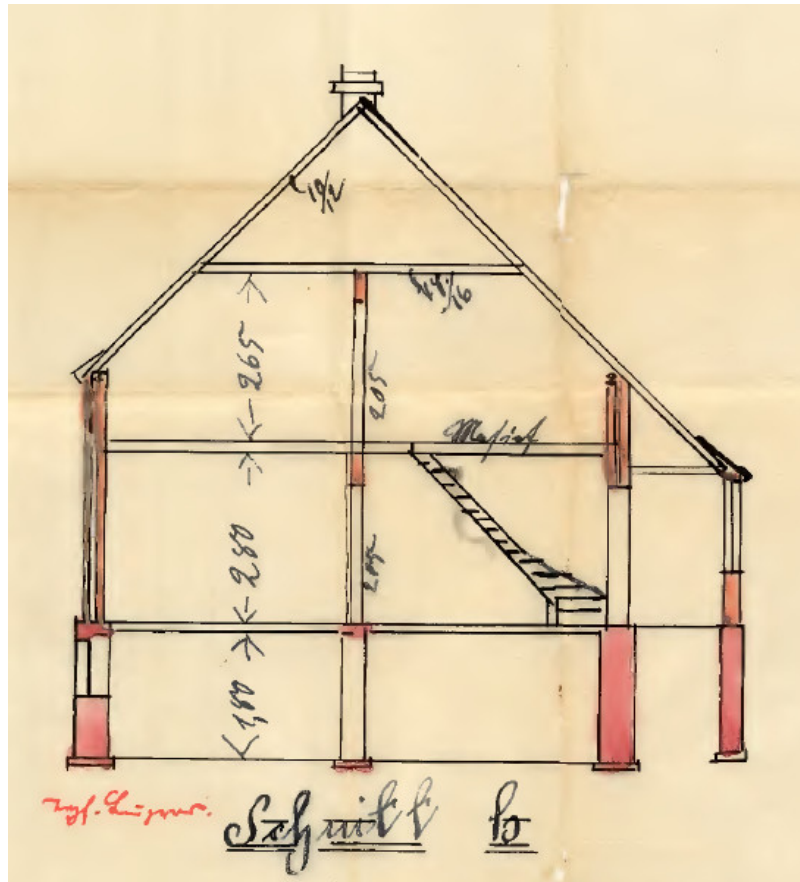 10/12
265
205
Massiv
280
205
1,80
Schnitt b